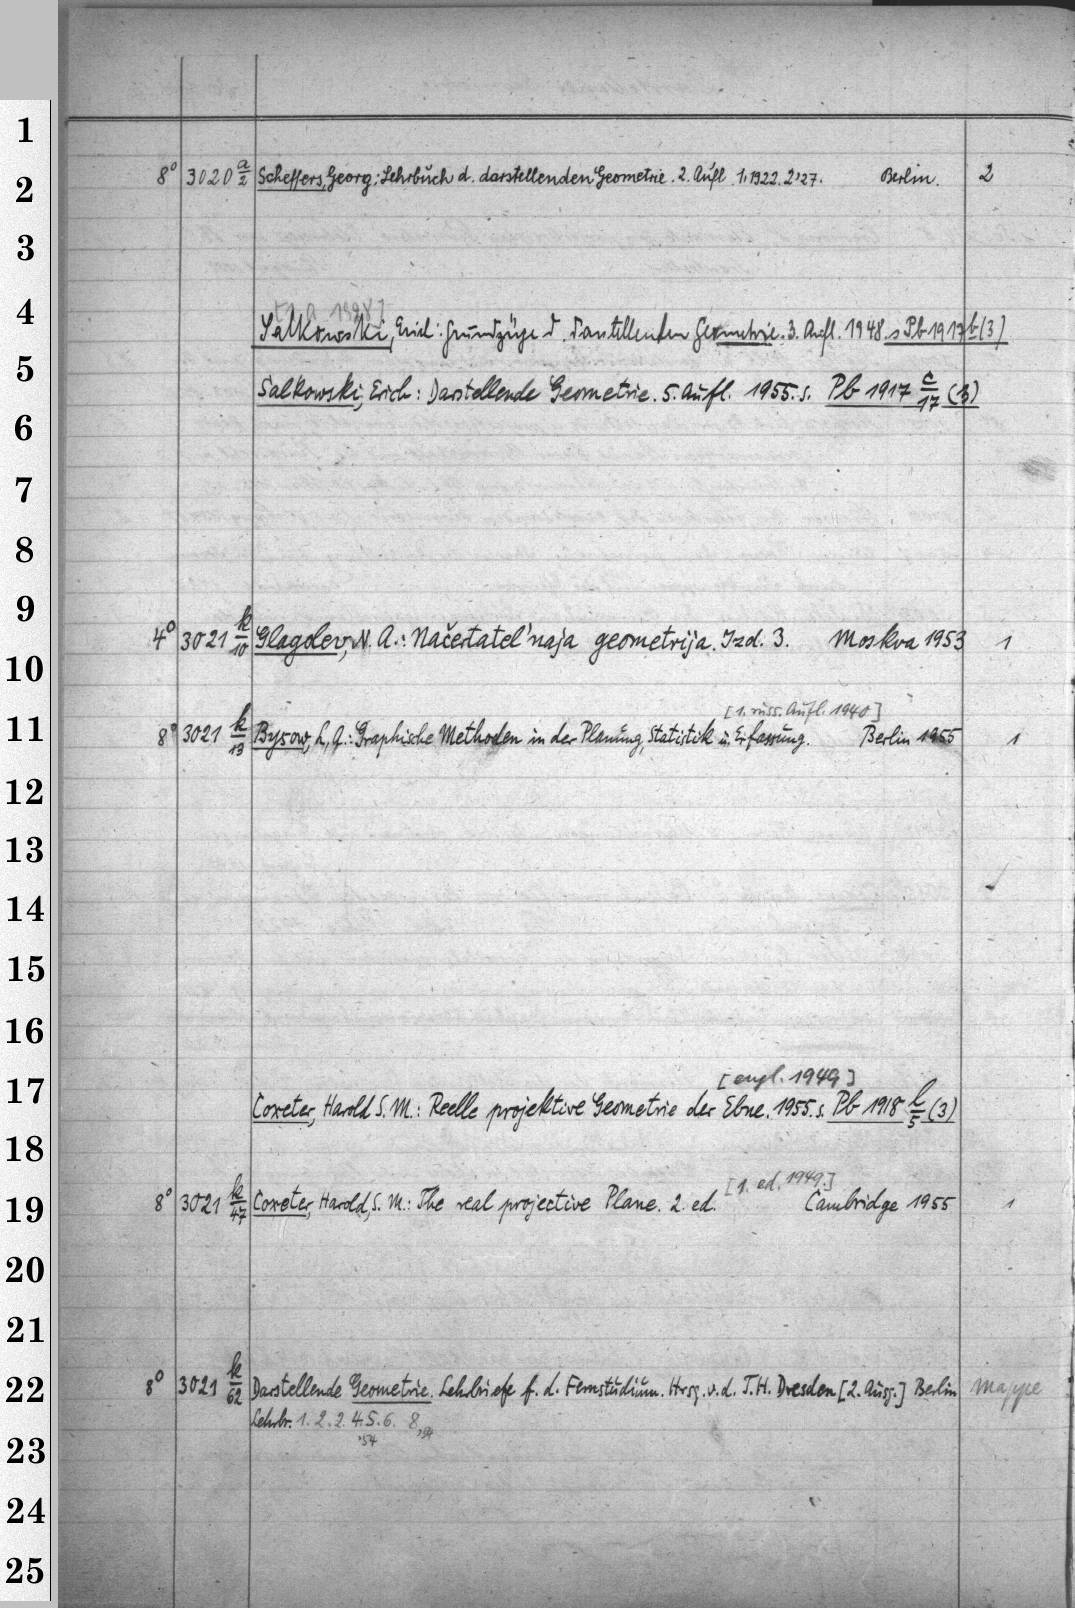 1
2
8° 3020 a/2 Scheffers, Georg: Lehrbuch d. darstellenden Geometrie. 2. Aufl. 1. 1922. 2. '27. Berlin. 2
3
4
[1. A. 1928]
Salkowski, Erich: Grundzüge d. darstellenden Geometrie. 3. Aufl. 1948. s Pb 1917 b (3)
5
Salkowski, Erich: Darstellende Geometrie. 5. Aufl. 1955. s. Pb 1917 c/17 (3)
6
7
8
9
4° 3021 k/10 Glagolev, N. A.: Načertatel'naja geometrija. Izd. 3. Moskva 1953 1
10
[1. russ. Aufl. 1940]
11
8° 3021 k/13 Bysow, L. A.: Graphische Methoden in der Planung, Statistik u. Erfassung. Berlin 1955 1
12
13
14
15
16
17
[engl. 1949]
Coxeter, Harold S. M.: Reelle projektive Geometrie der Ebne. 1955. s. Pb 1918 l/5 (3)
18
[1. ed. 1949.]
19
8° 3021 k/47 Coxeter, Harold, S. M.: The real projective Plane. 2. ed. Cambridge 1955 1
20
21
22
8° 3021 k/62 Darstellende Geometrie. Lehrbriefe f. d. Fernstudium. Hrsg. v. d. T.H. Dresden [2. Ausg.] Berlin Mappe
Lehrbr. 1. 2. 2. 4. 5. 6. 8, '54
'54
23
24
25